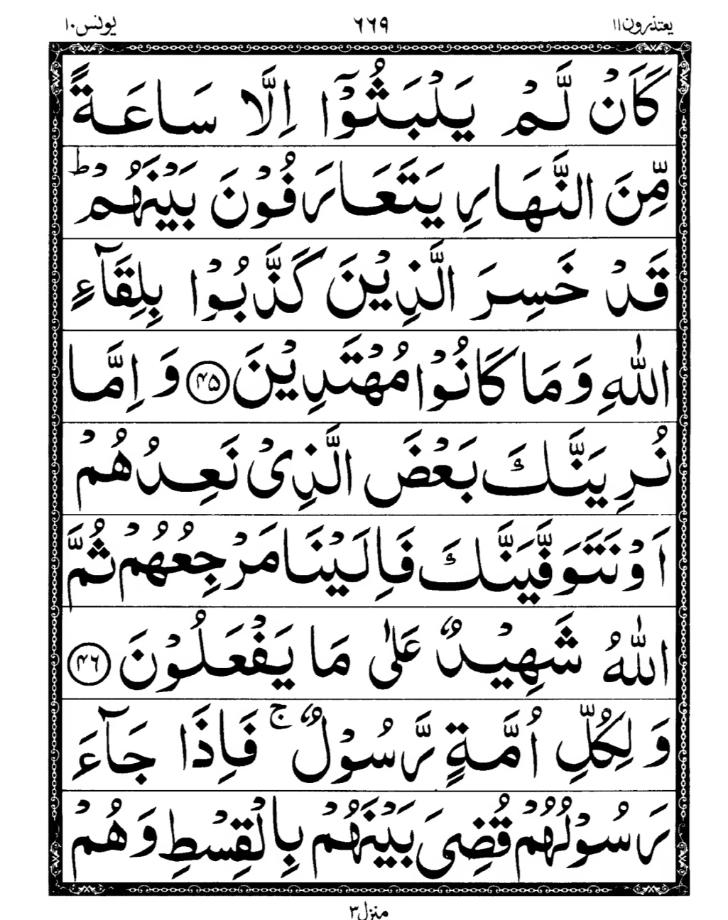 یعتذرون۱۱ ۶۶۹ یونس۱۰
كَاَنْ لَّمْ يَلْبَثُوْۤا اِلَّا سَاعَةً
مِّنَ النَّهَارِ يَتَعَارَفُوْنَ بَيْنَهُمْ ؕ
قَدْ خَسِرَ الَّذِيْنَ كَذَّبُوْا بِلِقَآءِ
اللّٰهِ وَمَا كَانُوْا مُهْتَدِيْنَ ﴿۴۵﴾ وَ اِمَّا
نُرِيَنَّكَ بَعْضَ الَّذِيْ نَعِدُهُمْ
اَوْ نَتَوَفَّيَنَّكَ فَاِلَيْنَا مَرْجِعُهُمْ ثُمَّ
اللّٰهُ شَهِيْدٌ عَلٰى مَا يَفْعَلُوْنَ ﴿۴۶﴾
وَ لِكُلِّ اُمَّةٍ رَّسُوْلٌ ۚ فَاِذَا جَآءَ
رَسُوْلُهُمْ قُضِيَ بَيْنَهُمْ بِالْقِسْطِ وَهُمْ
منزل۳